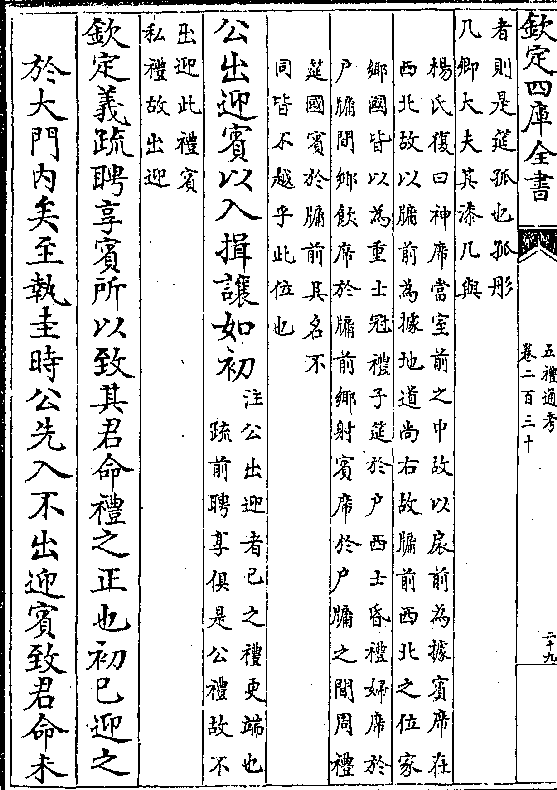 欽定四庫全書
五禮通考
卷二百三十
二十九
者則是筵孤也孤彤
几卿大夫其漆几與
楊氏復曰神席當室前之中故以扆前為據賓席在
西北故以牖前為據地道尚右故牖前西北之位家
鄉國皆以為重士冠禮子筵於户西士昏禮婦席於
户牖間鄉飲席於牖前鄉射賓席於户牖之間周禮
筵國賓於牖前其名不
同皆不越乎此位也
公出迎賓以入揖讓如初
注公出迎者已之禮更端也
疏前聘享俱是公禮故不
出迎此禮賓
私禮故出迎
欽定義疏聘享賓所以致其君命禮之正也初已迎之
於大門内矣至執圭時公先入不出迎賓致君命未